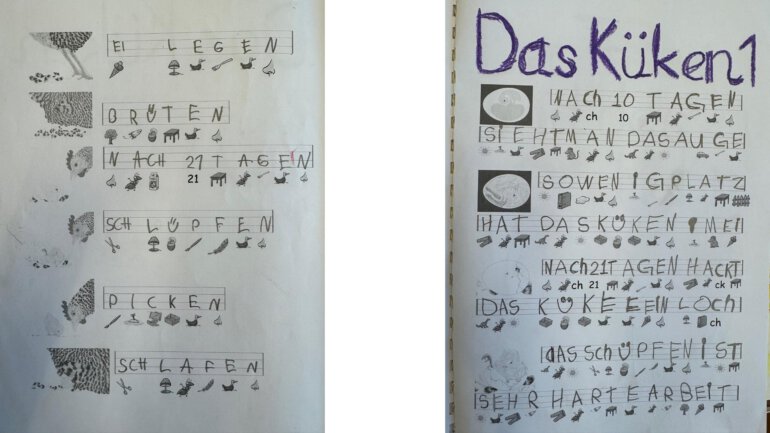 EI LEGEN
BRÜTEN
NACH 21 TAGEN
21
SCH LÜPFEN
PICKEN
SCH LAFEN
Das Küken 1
NACh 10 TAGEN
ch 10
SIEHT MAN DAS AUGE
SO WENIG PLATZ
HAT DAS KÜKEN IM EI
NACh 21 TAGEN HACKT
ch 21 ck
DAS KÜKEE EIN LOCh
ch
DAS SCh ÜPFEN IST
SEHR HARTE ARBEIT